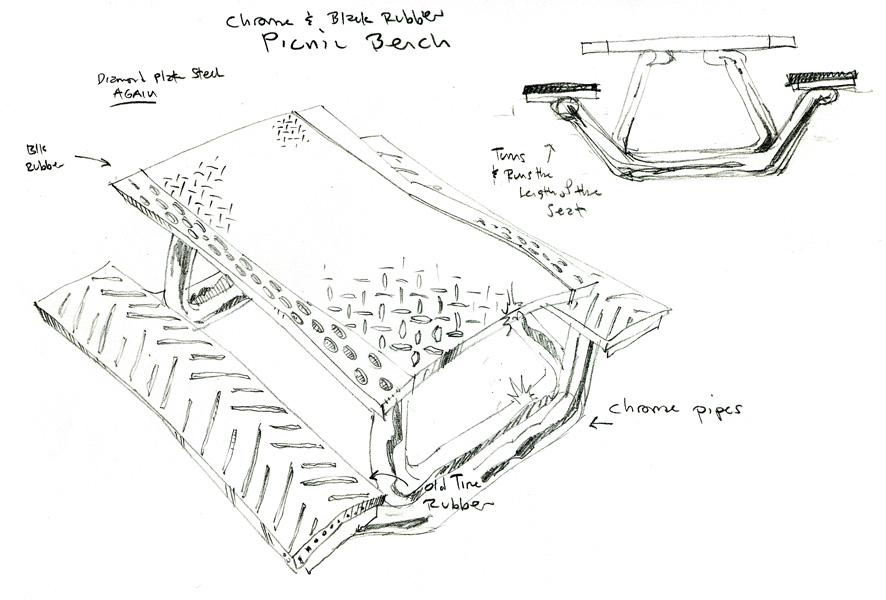 Chrome & Black Rubber
Picnic Bench
Diamond Plate Steel
AGAIN
Blk
Rubber
Turns
& Runs the
Length of the
Seat
Chrome pipes
Old Tire
Rubber